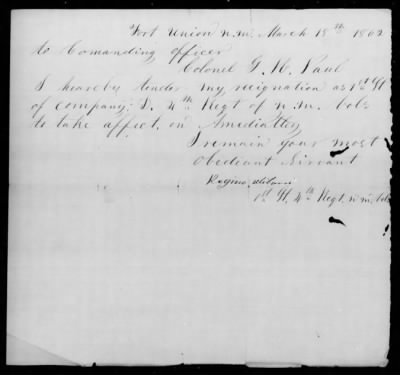 Fort Union N.M. March 18th 1862
to Comanding officer
Colonel G. R. Paul
I heareby tender my resignation as 1st Lt
of company I. 4th Regt of N.M. Vols
to take affect on Amediatley
I remain your most
Obediant Sirvant
Regino
1st Lt. 4th Regt. N.M. Vols